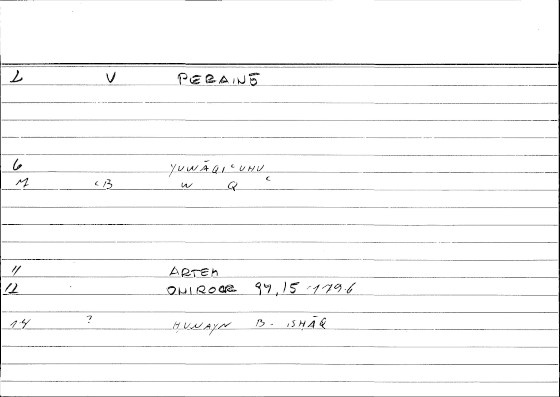 1 V PERAINŌ
6 YUWĀQIʿUHU
M ʿB W Q ʿ
11 ARTEM
12 ONIROCR 94,15 1796
14 ? ḤUNAYN B- ISḤĀQ